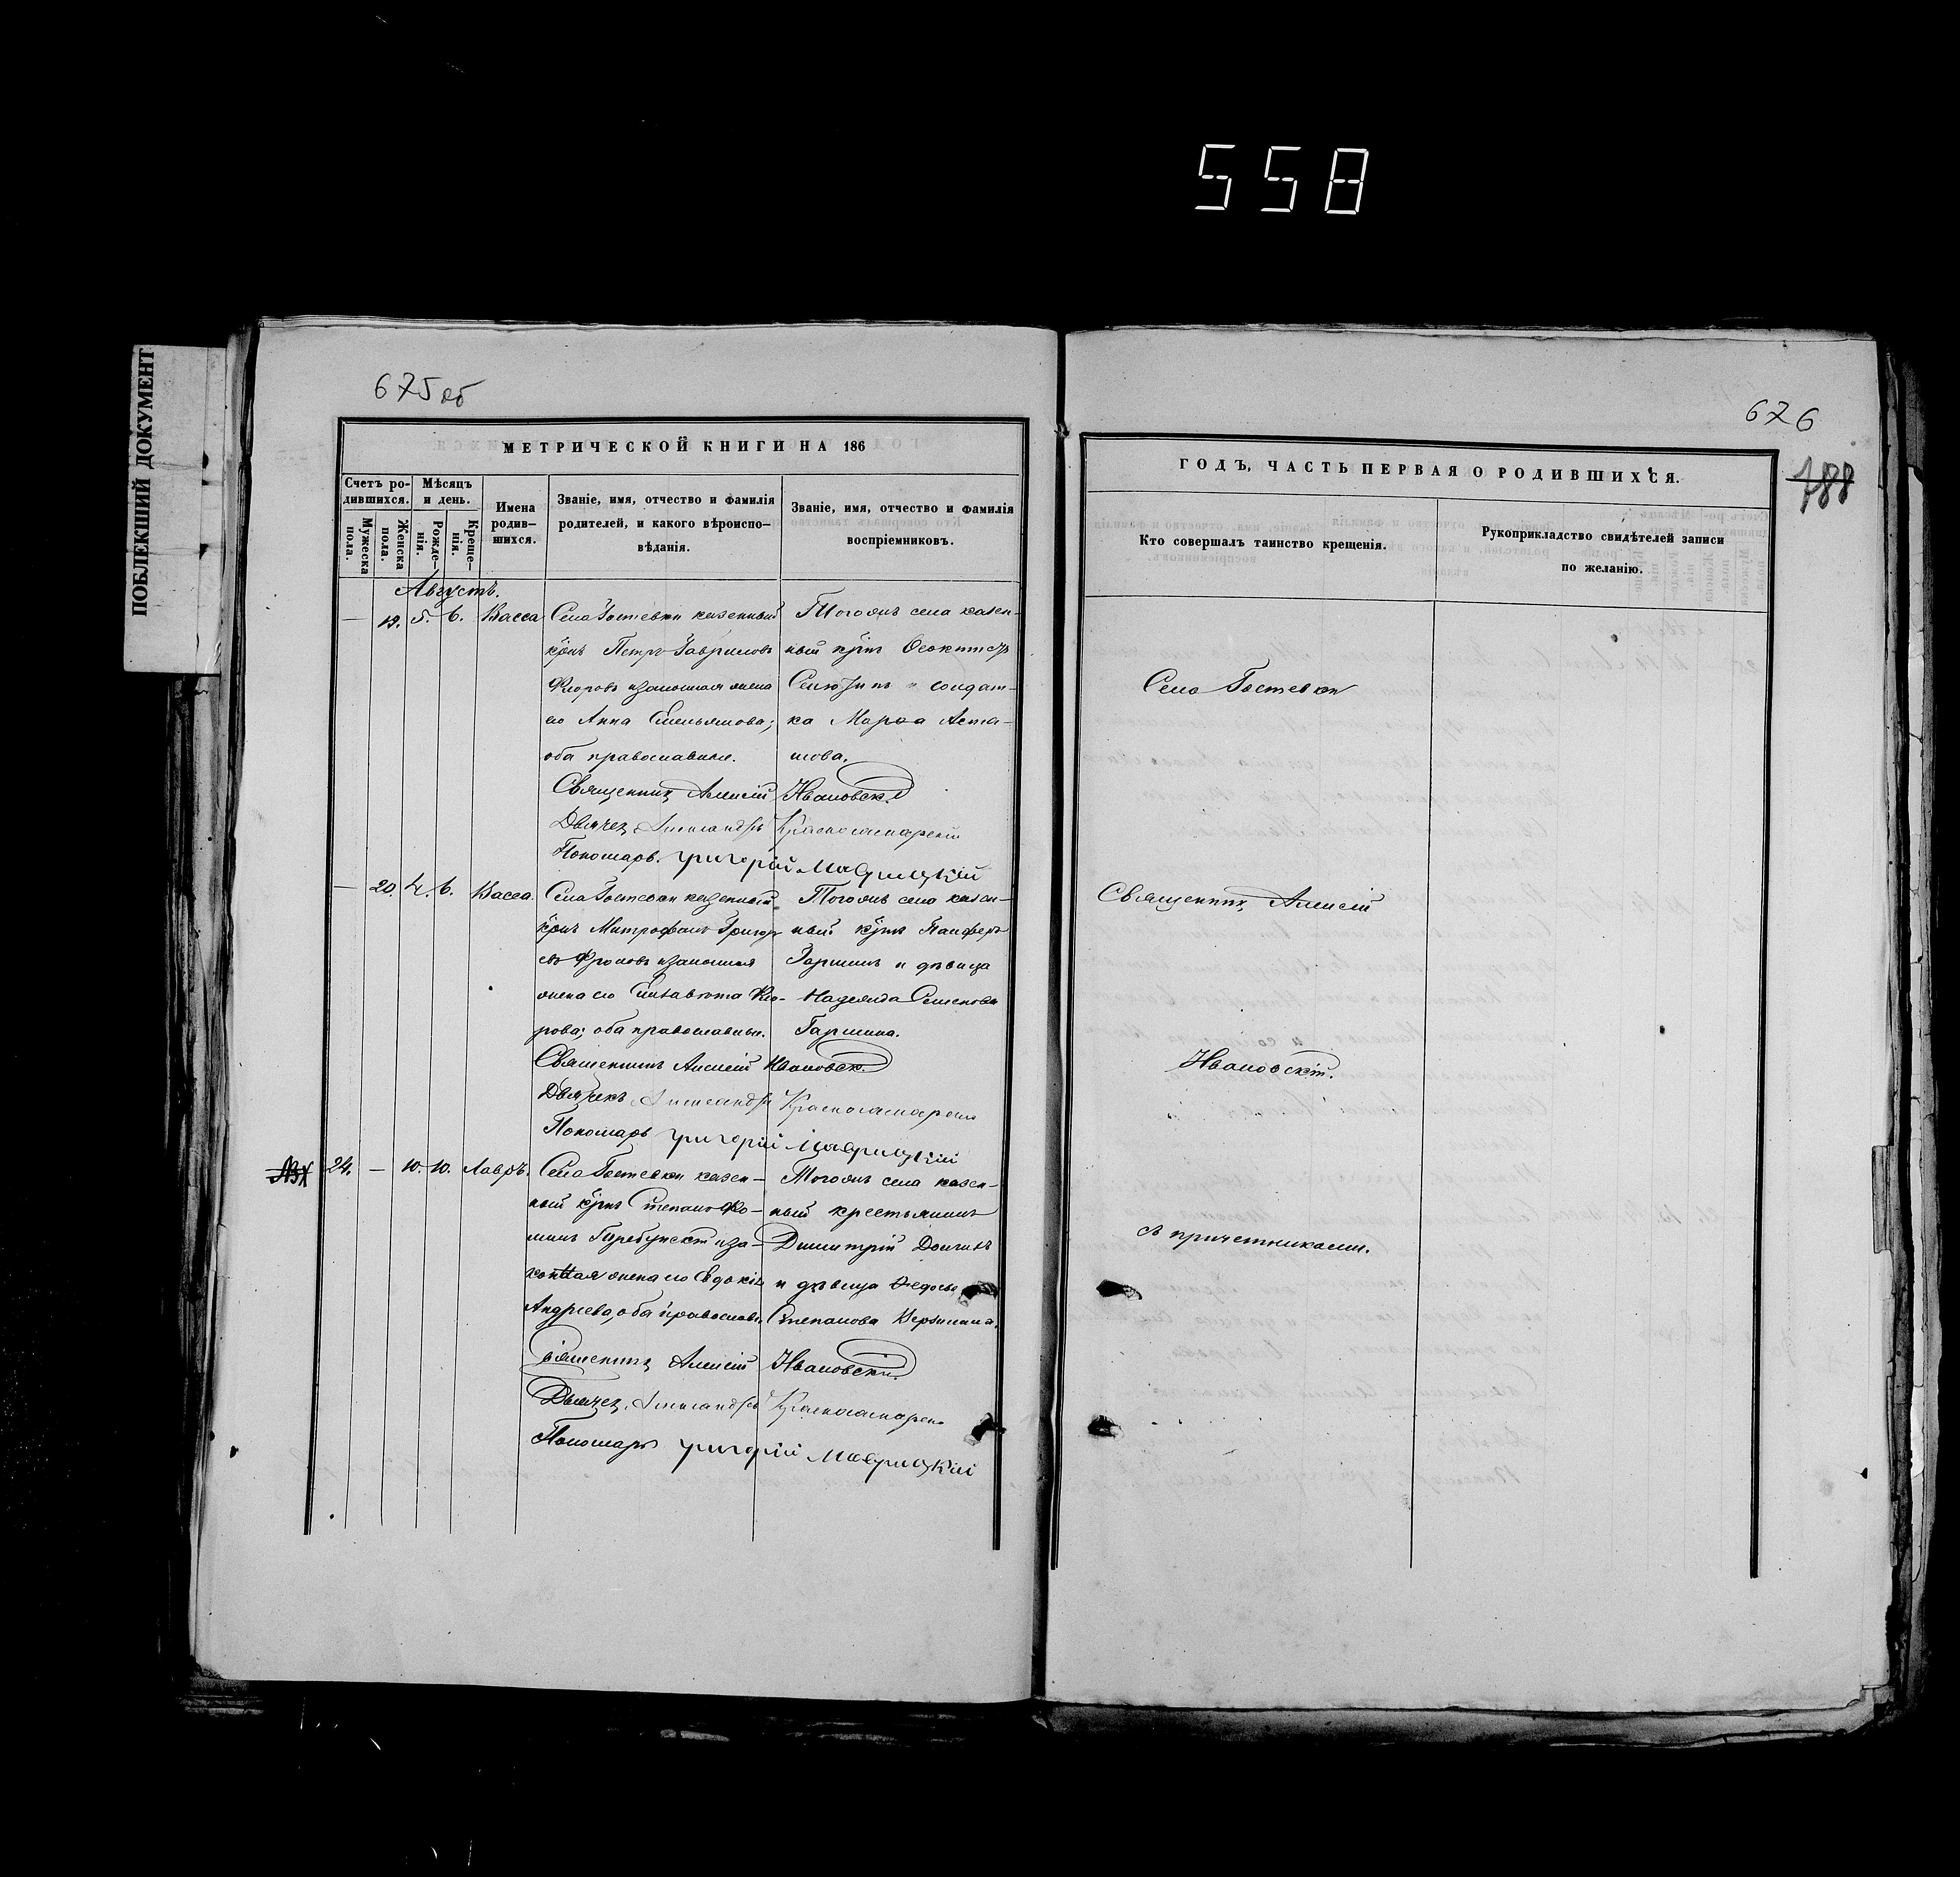 558
ПОБЛЕКШИЙ ДОКУМЕНТ
675 об
МЕТРИЧЕСКОЙ КНИГИ НА 186
Счетъ родившихся.
Мужеска пола.
Женска пола.
Мѣсяцъ и день.
Рожденія.
Крещенія.
Имена родившихся.
Званіе, имя, отчество и фамилія
родителей, и какого вѣроисповѣданія.
Званіе, имя, отчество и фамилія
воспріемниковъ.
Августъ.
— 19. 5. 6. Васса
Села Гостевки казенный
Петръ Гавриловъ
законная жена
его Анна Емельянова;
оба православные.
Тогоже села казен-
ный
и солдат-
ка Марѳа Аста-
шова.
Священникъ Алексій Ивановскій
Дьячекъ Александръ
Пономарь Григорій Маврицкій
— 20. 4. 6. Васса.
Села Гостевки казенный
Митрофанъ Григорь
евъ Фроловъ и законная
жена его Елизавета Кло-
рова; оба православные.
Тогоже села казен-
ный Панферъ
Гаршинъ и дѣвица
Надежда Семенова
Гаршина.
Священникъ Алексій Ивановскій
Дьячекъ Александръ
Пономарь Григорій Маврицкій
24. — 10. 10. Лавръ.
Села Гостевки казен-
ный Степанъ Фо-
минъ и за-
конная жена его Евдокія
Андреева, оба православн.
Тогоже села казен-
ный крестьянинъ
Димитрій
и дѣвица Ѳедосья
Степанова
Священникъ Алексій Ивановскій
Дьячекъ Александръ
Пономарь Григорій Маврицкій
676
788
ГОДЪ, ЧАСТЬ ПЕРВАЯ О РОДИВШИХСЯ.
Кто совершалъ таинство крещенія.
Рукоприкладство свидѣтелей записи
по желанію.
Села Гостевки
Священникъ Алексій
Ивановскій.
съ причетниками.